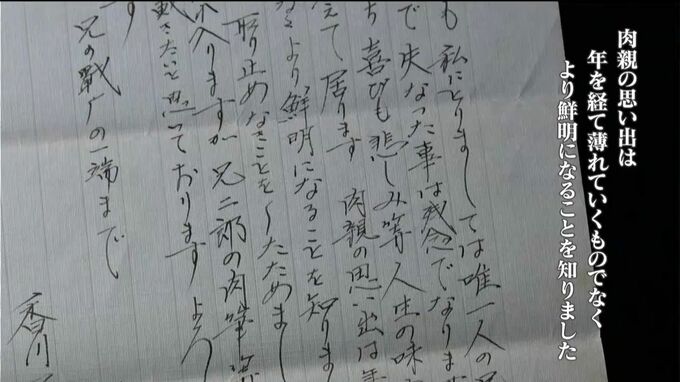 肉親の思い出は
年を経て薄れていくものでなく
より鮮明になることを知りました
も 私にとりましては唯一人の
で失なった事は残念でなりま
ち 喜びも悲しみ等人生の味
えて居ります 肉親の思い出は年
より鮮明になることを知りま
取り止めなきことをしたためまし
入りますが兄二郎の肉筆
戴きたいと思っております よろ
す
兄の の一端まで
香川